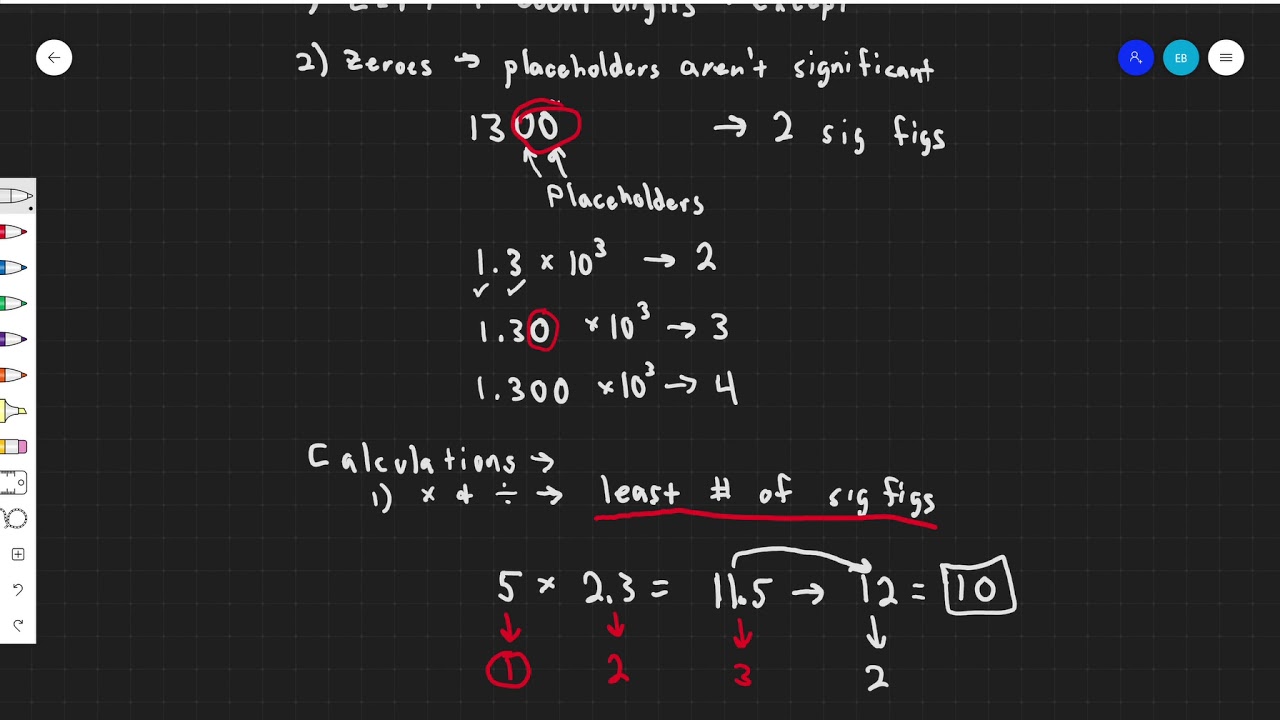 2) Zeroes → placeholders aren't significant
1300 → 2 sig figs
Placeholders
1.3 × 10³ → 2
1.30 × 10³ → 3
1.300 × 10³ → 4
Calculations →
1) × & ÷ → least # of sig figs
5 × 2.3 = 11.5 → 12 = 10
1 2 3 2
EB